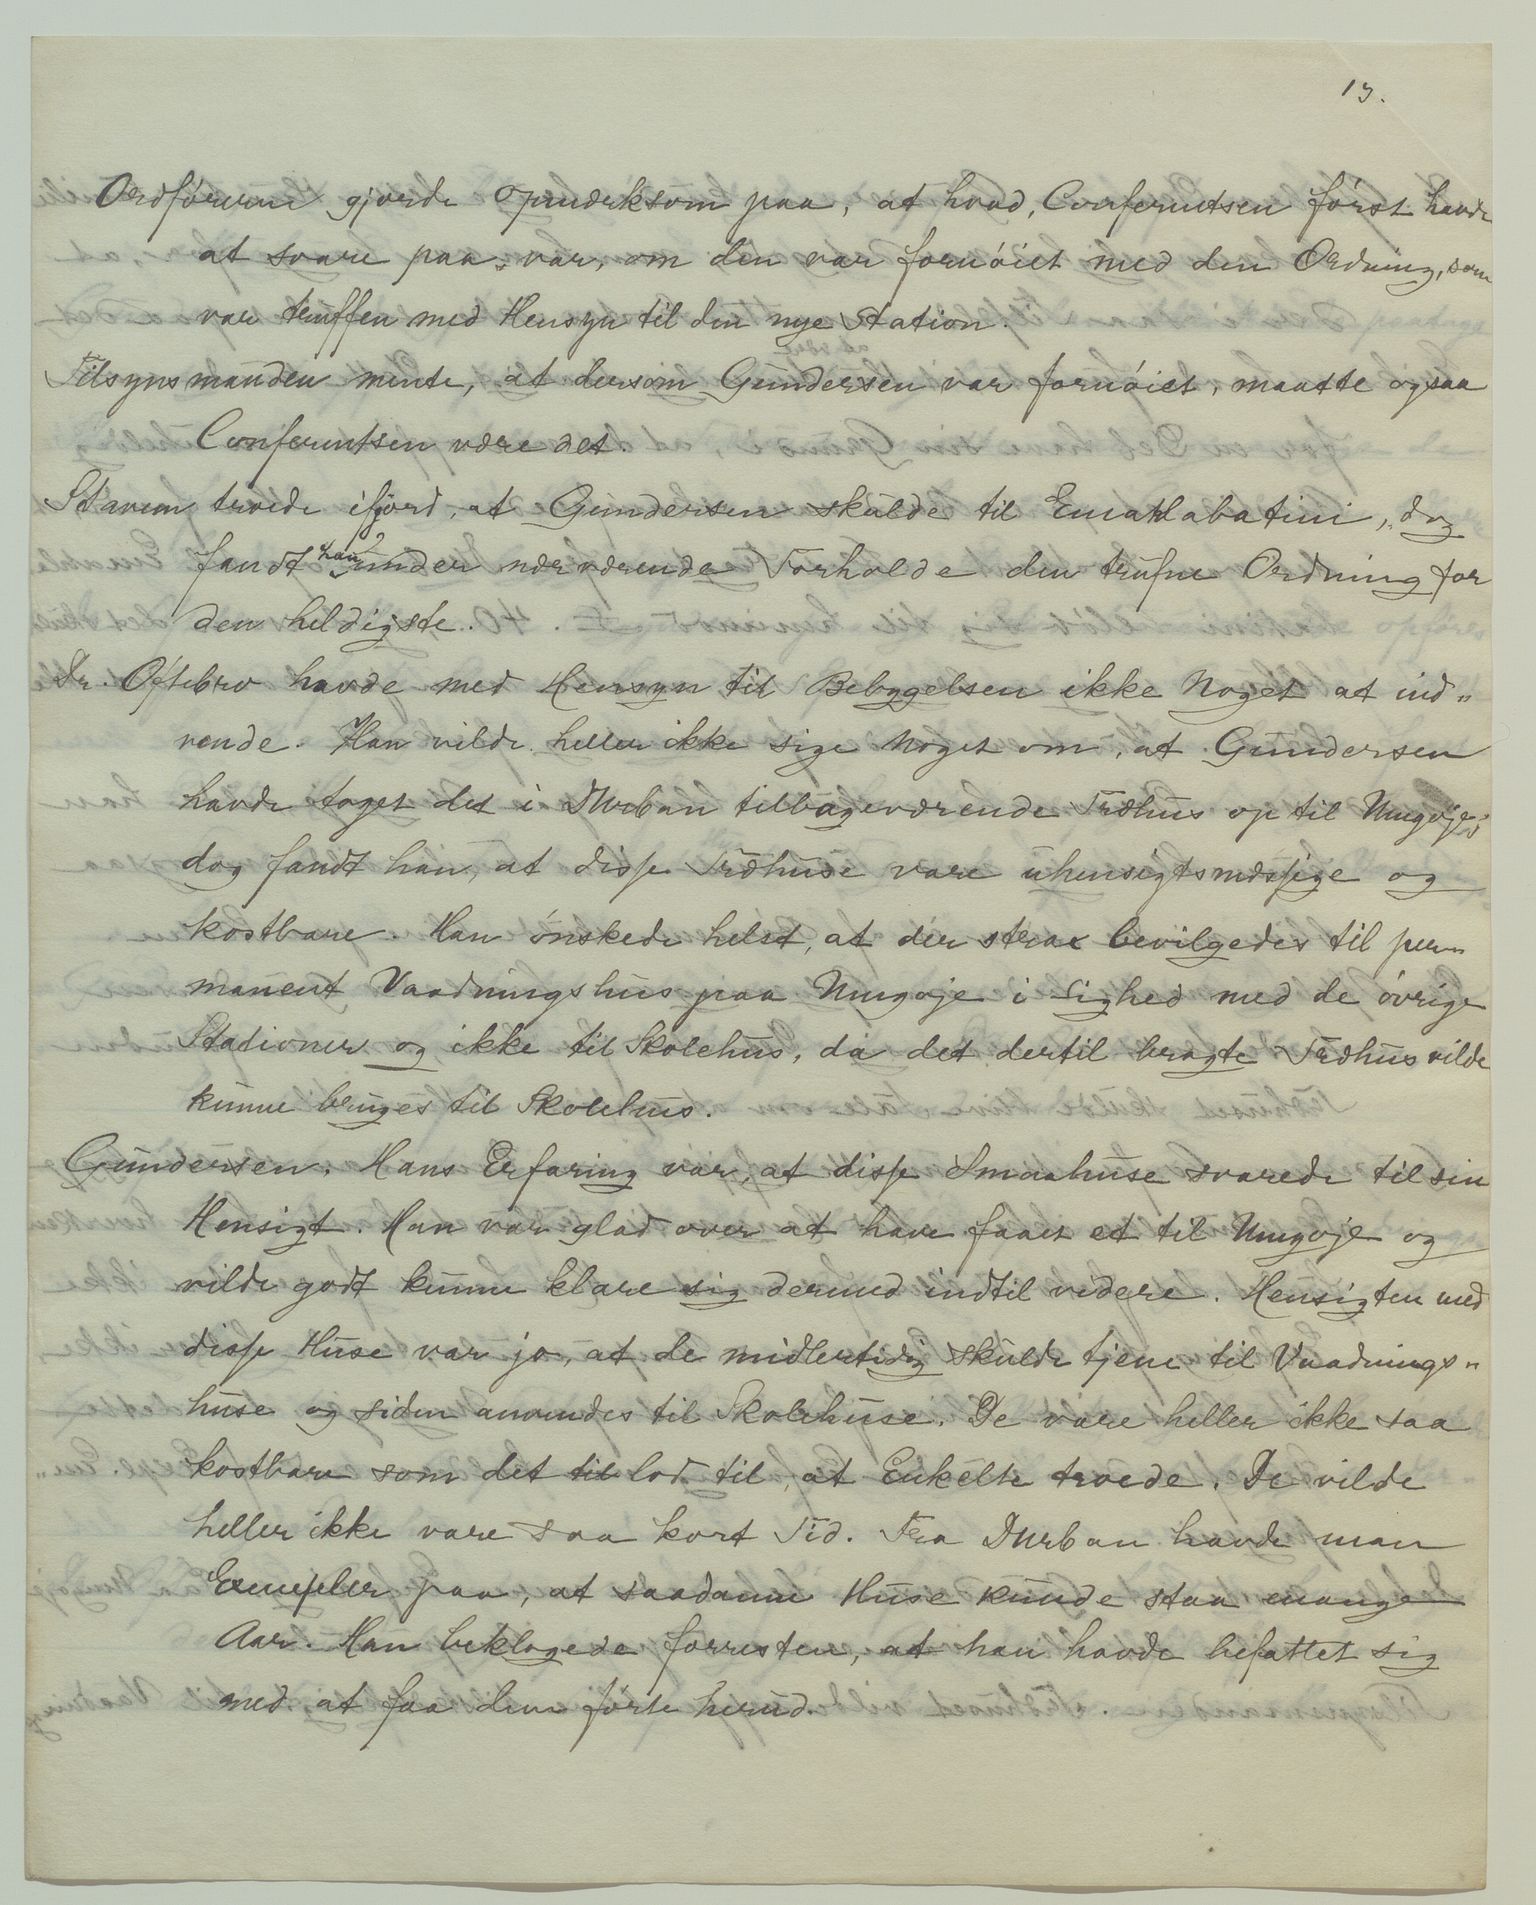 13.
Ordføreren gjorde opmærksom paa, at hvad, Conferentsen først havde
at svare paa, var, om den var fornøiet med den Ordning, som
var truffen med Hensyn til den nye Station.
Tilsynsmanden mente, at dersom Gundersen var fornøiet, maatte ogsaa
Conferentsen være det.
Stavem troede ifjord, at Gundersen skulde til Emahlabatini, dog
fandt han under nærværende Forholde den trufne Ordning for
den heldigste.
Dr. Oftebro havde med Hensyn til Bebyggelsen ikke Noget at ind„
vende. Han vilde heller ikke sige Noget om, at Gundersen
havde taget det i Durban tilbageværende Træhus op til Umgoje;
dog fandt han, at disse Træhuse vare uhensigtsmæssige og
kostbare. Han ønskede helst, at der strax bevilgedes til per„
manent Vaadningshus paa Umgoje i Lighed med de øvrige
Stationer og ikke til Skolehus, da det dertil bragte Træhus vilde
kunne bruges til Skolehus.
Gundersen. Hans Erfaring var, at disse Smaahuse svarede til sin
Hensigt. Han var glad over at have faaet et til Umgoje og
vilde godt kunne klare sig dermed indtil videre. Hensigten med
disse Huse var jo, at de midlertidig skulde tjene til Vaadnings„
huse og siden anvendes til Skolehuse. De vare heller ikke saa
kostbare som det til lod til, at Enkelte troede. De vilde
heller ikke vare saa kort Tid. Fra Durban havde man
Exempler paa, at saadanne Huse kunde staa mange
Aar. Han beklagede forresten, at han havde befattet sig
med at faa dem førte herud.